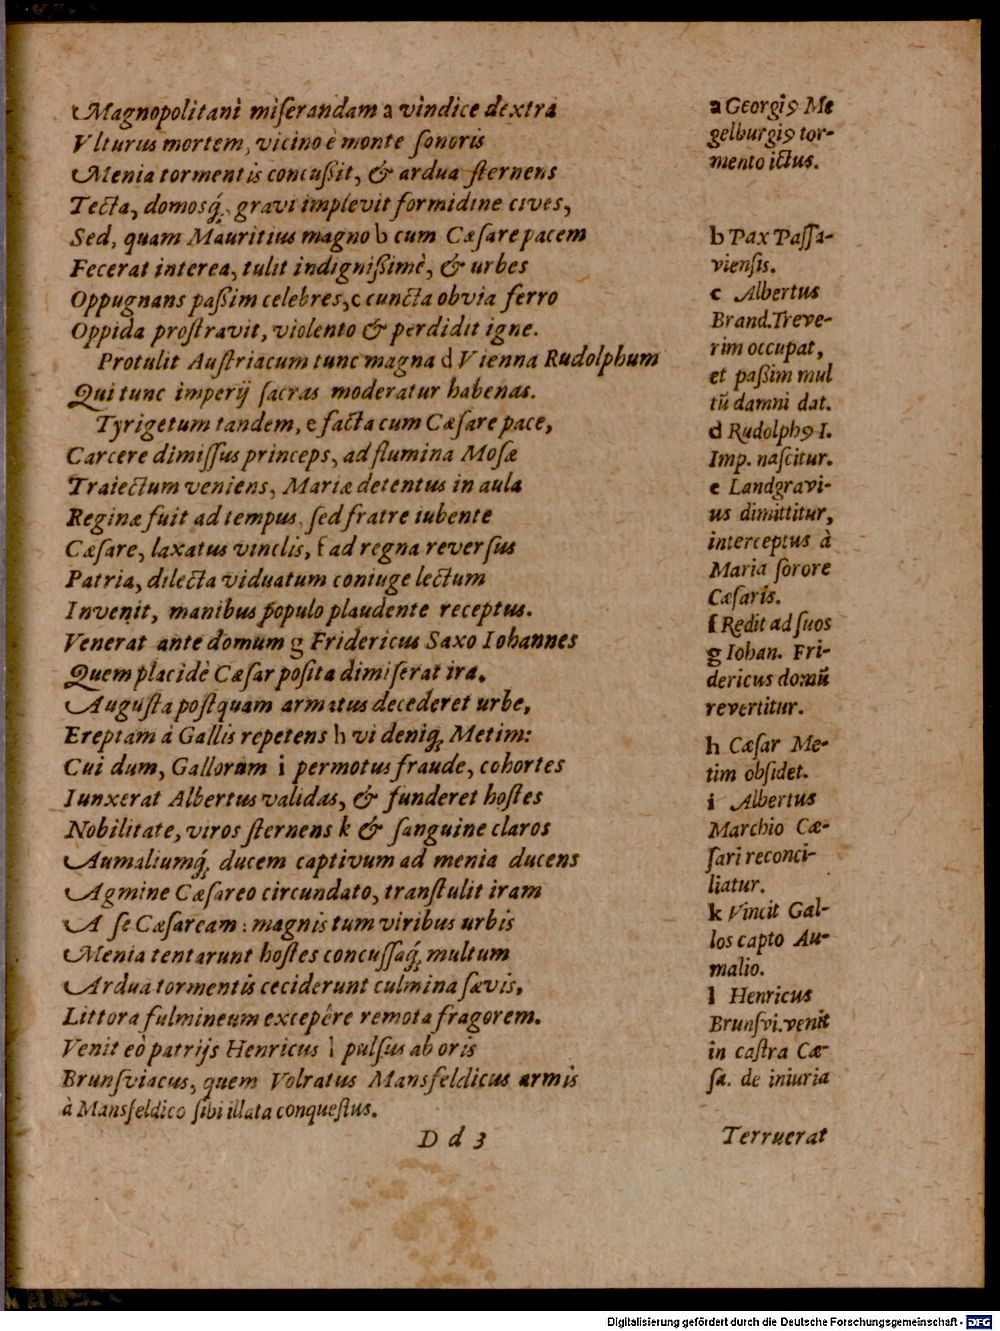 Magnopolitani miſerandam a vindice dextra
Vlturus mortem, vicino è monte ſonoris
Menia tormentis concußit, & ardua ſternens
Tecta, domosq́;, gravi implevit formidine cives,
Sed, quam Mauritius magno b cum Cæſare pacem
Fecerat interea, tulit indignißimè, & urbes
Oppugnans paßim celebres, c cuncta obvia ferro
Oppida proſtravit, violento & perdidit igne.
Protulit Auſtriacum tunc magna d Vienna Rudolphum
Qui tunc imperij ſacras moderatur habenas.
Tyrigetum tandem, e facta cum Cæſare pace,
Carcere dimiſſus princeps, ad flumina Moſæ
Traiectum veniens, Mariæ detentus in aula
Reginæ fuit ad tempus, ſed fratre iubente
Cæſare, laxatus vinclis, f ad regna reverſus
Patria, dilecta viduatum coniuge lectum
Invenit, manibus populo plaudente receptus.
Venerat ante domum g Fridericus Saxo Iohannes
Quem placidè Cæſar poſita dimiſerat ira.
Auguſta poſtquam armatus decederet urbe,
Ereptam à Gallis repetens h vi deniq; Metim:
Cui dum, Gallorum i permotus fraude, cohortes
Iunxerat Albertus validas, & funderet hoſtes
Nobilitate, viros ſternens k & ſanguine claros
Aumaliumq́; ducem captivum ad menia ducens
Agmine Cæſareo circundato, tranſtulit iram
A ſe Cæſaream: magnis tum viribus urbis
Menia tentarunt hoſtes concuſſaq́; multum
Ardua tormentis ceciderunt culmina ſævis,
Littora fulmineum excepêre remota fragorem.
Venit eò patrijs Henricus l pulſus ab oris
Brunſviacus, quem Volratus Mansfeldicus armis
à Mansfeldico ſibi illata conqueſtus.
D d 3
a Georgiꝰ Me
gelburgiꝰ tor-
mento ictus.
b Pax Paſſa-
vienſis.
c Albertus
Brand. Treve-
rim occupat,
et paßim mul
tū damni dat.
d Rudolphꝰ I.
Imp. naſcitur.
e Landgravi-
us dimittitur,
interceptus à
Maria ſorore
Cæſaris.
f Redit ad ſuos
g Iohan. Fri-
dericus domū
revertitur.
h Cæſar Me-
tim obſidet.
i Albertus
Marchio Cæ-
ſari reconci-
liatur.
k Vincit Gal-
los capto Au-
malio.
l Henricus
Brunſvi. venit
in caſtra Cæ-
ſa. de iniuria
Terruerat
Digitalisierung gefördert durch die Deutsche Forschungsgemeinschaft - DFG